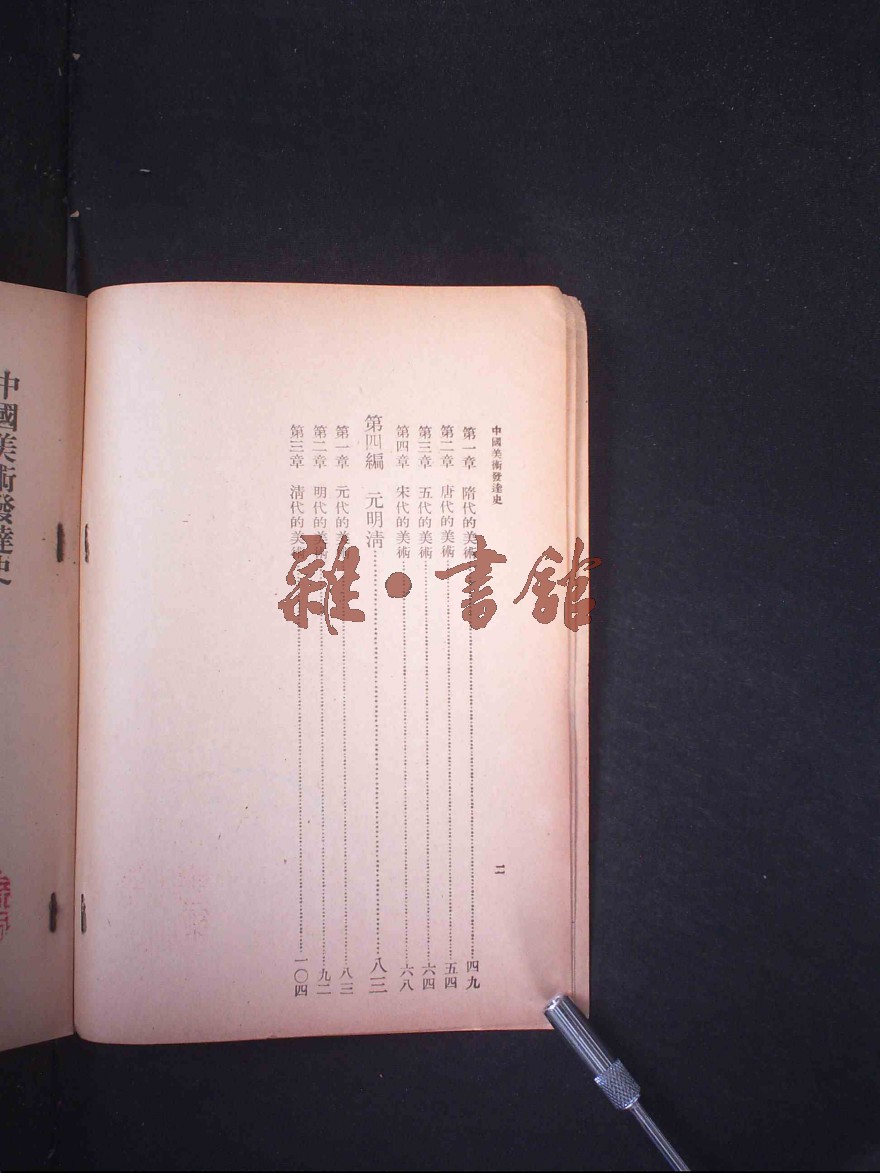 中國美術發達史
二
第一章 隋代的美術……四九
第二章 唐代的美術……五四
第三章 五代的美術……六四
第四章 宋代的美術……六八
第四編 元明清……八三
第一章 元代的美術……八三
第二章 明代的美術……九二
第三章 清代的美術……一〇四
中國美術發達史
雜·書館